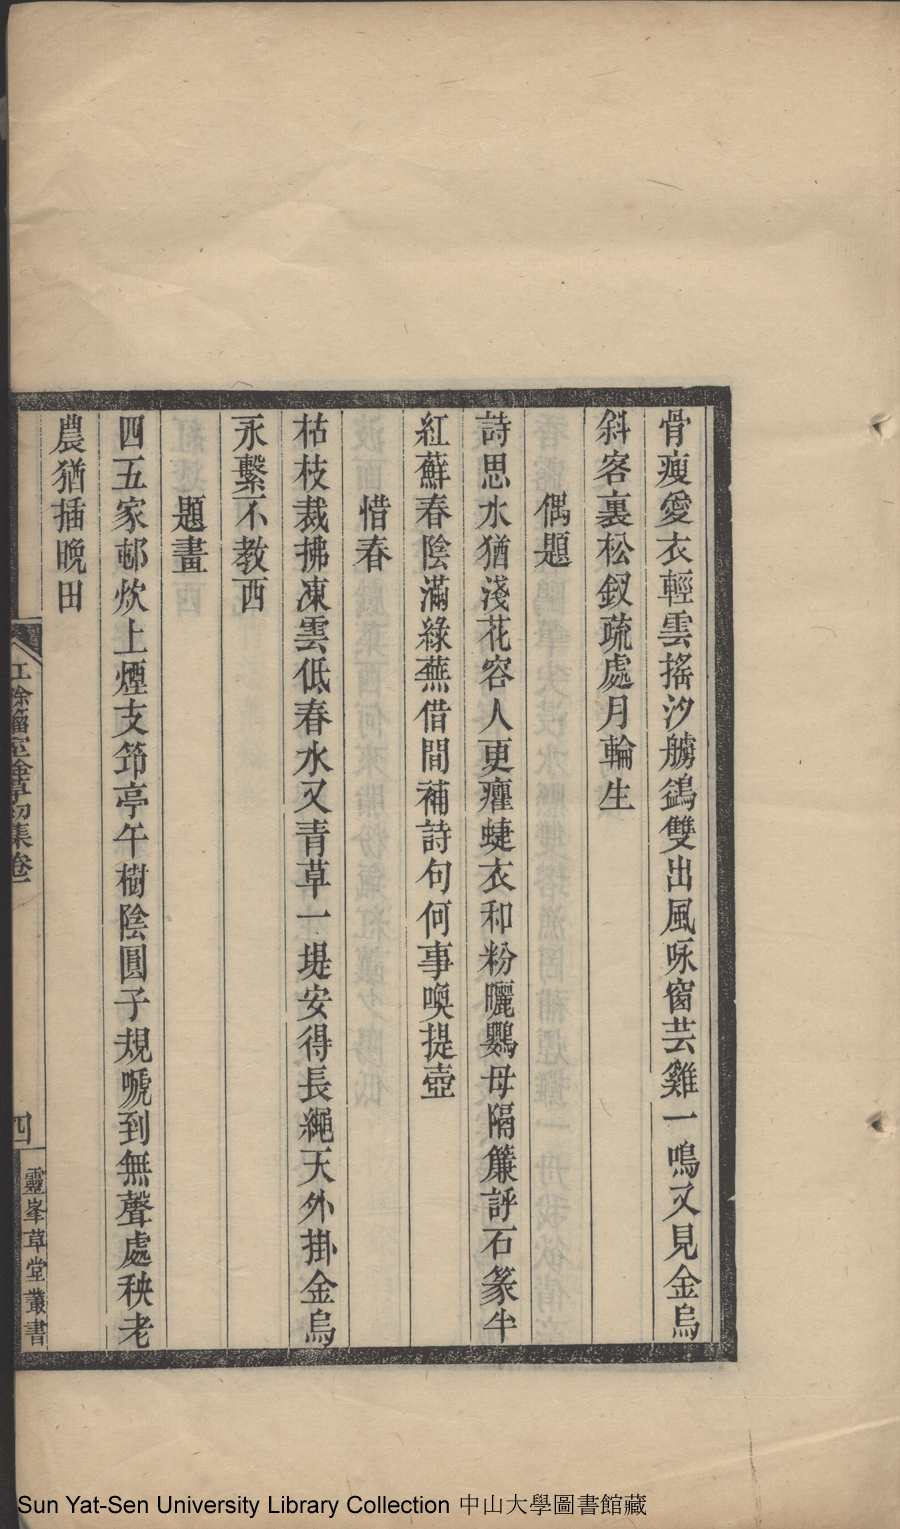 骨瘦愛衣輕雲搖汐艣鷁雙出風咏窗芸雞一鳴又見金烏
斜客裏松釵疏處月輪生
偶題
詩思水猶淺花容人更癯蜨衣和粉曬鸚母隔簾評石篆半
紅蘚春陰滿綠蕪借間補詩句何事喚提壺
惜春
枯枝裁拂凍雲低春水又青草一堤安得長繩天外掛金烏
永繫不教西
題畫
四五家邨炊上煙支筇亭午樹陰圓子規嗁到無聲處秧老
農猶插晚田
集卷一
四
靈峯草堂叢書
Sun Yat-Sen University Library Collection 中山大學圖書館藏